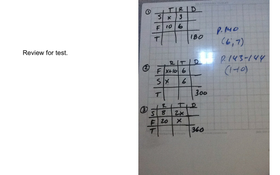 Review for test.
①
T R D
S x 3
F 10 6
T 180
②
R T D
F x+10 6
S x 6
T 300
③
R T D
S 8 2x
F 20 x
T 360
(6, 9)
P. 143-144
(1-10)